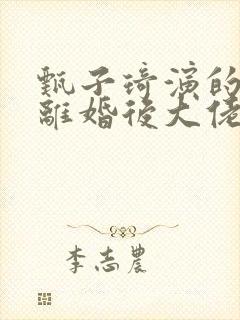 甄子琦演的
離婚後大佬
李志農